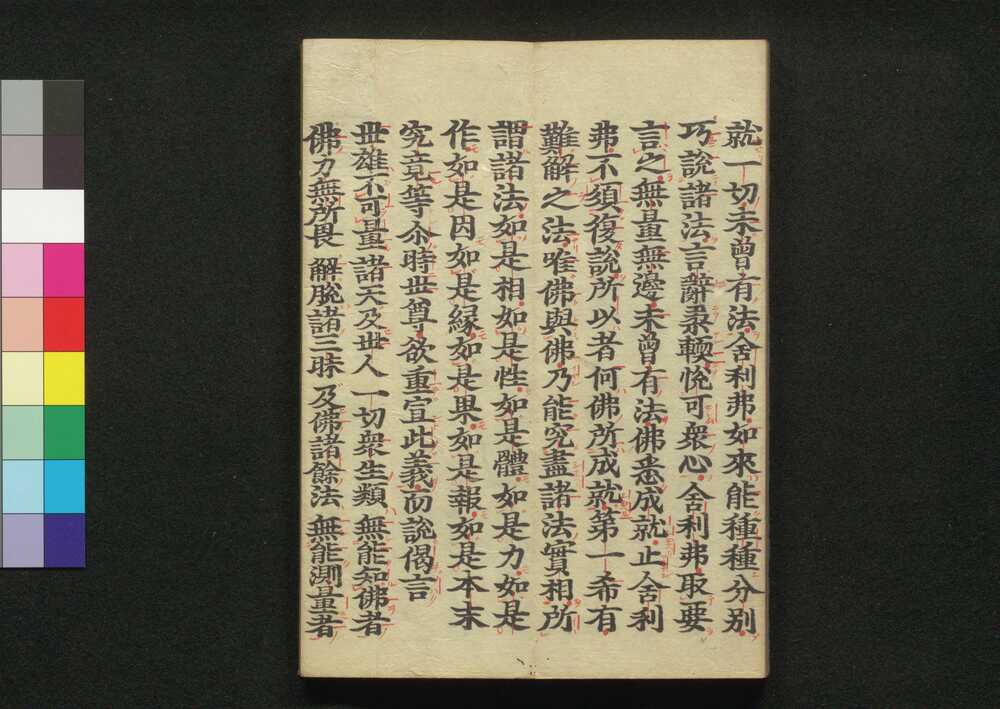 就一切未曾有法舍利弗如來能種種分別
巧說諸法言辭柔輭悅可衆心舍利弗取要
言之無量無邊未曾有法佛悉成就止舍利
弗不須復說所以者何佛所成就第一希有
難解之法唯佛與佛乃能究盡諸法實相所
謂諸法如是相如是性如是體如是力如是
作如是因如是緣如是果如是報如是本末
究竟等尒時世尊欲重宣此義而說偈言
世雄不可量 諸天及世人 一切衆生類 無能知佛者
佛力無所畏 解脫諸三昧 及佛諸餘法 無能測量者